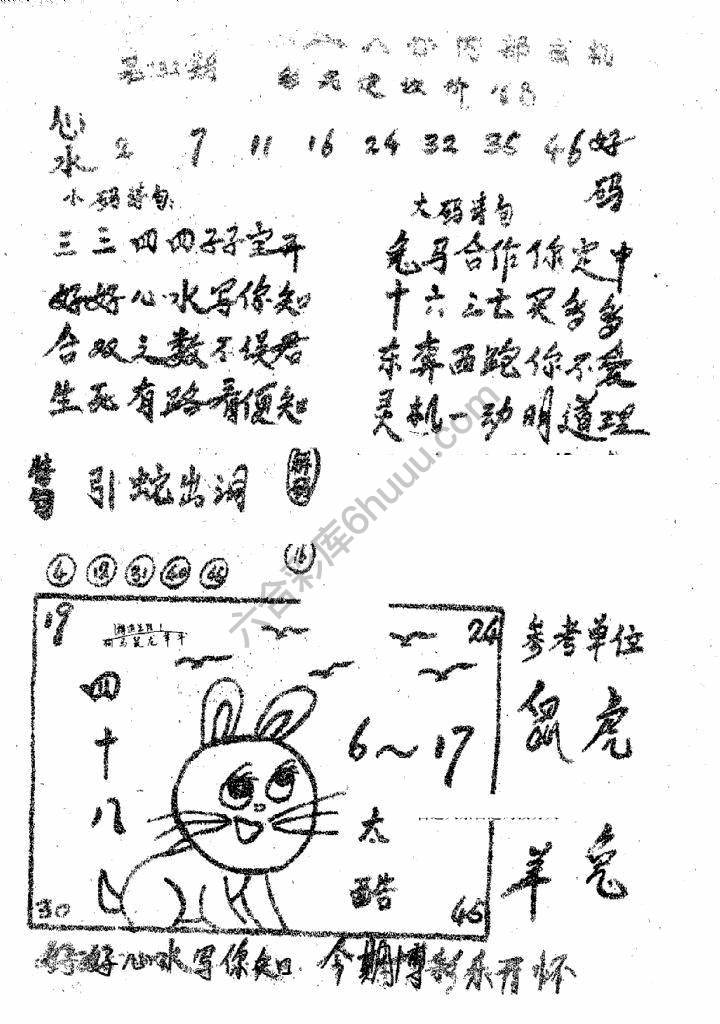 心水 2 7 11 16 24 32 35 46 好码
小码诗句
三三四四子子宝开
好好心水写你知
合双之数不误君
生死有路看便知
大码诗句
兔马合作你定中
十六三七买多多
东奔西跑你不爱
灵机一动明道理
特句 引蛇出洞
4 12 31 40 16
19 24
四十八
6～17
太酷
30 45
参考单位
鼠虎
羊兔
好好心水写你知 今期博彩乐开怀
六合彩库6huuu.com